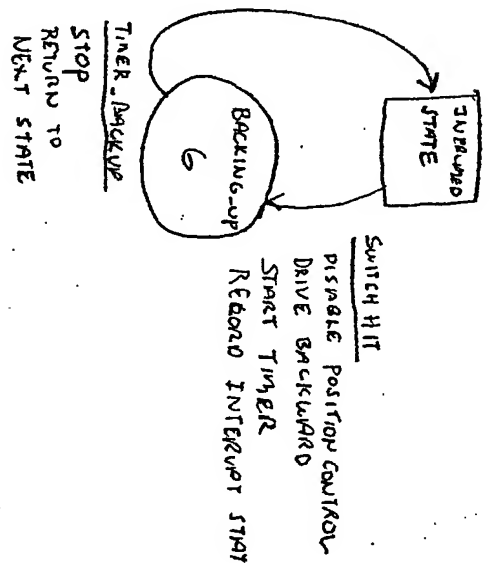 INTERUPTED
STATE
SWITCH HIT
DISABLE POSITION CONTROL
DRIVE BACKWARD
START TIMER
RECORD INTERRUPT STAT
BACKING_UP
6
TIMER_BACKUP
STOP
RETURN TO
NEXT STATE